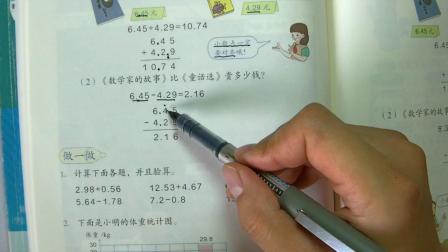 6.45元
4.29元
6.45+4.29=10.74
6.45
+ 4.29
10.74
小数点一定
要对齐哦！
(2)《数学家的故事》比《童话选》贵多少钱？
6.45-4.29=2.16
6.45
- 4.29
2.16
做一做
1. 计算下面各题，并且验算。
2.98+0.56 12.53+4.67
5.64-1.78 7.2-0.8
2. 下面是小明的体重统计图。
体重/kg
30
29.8